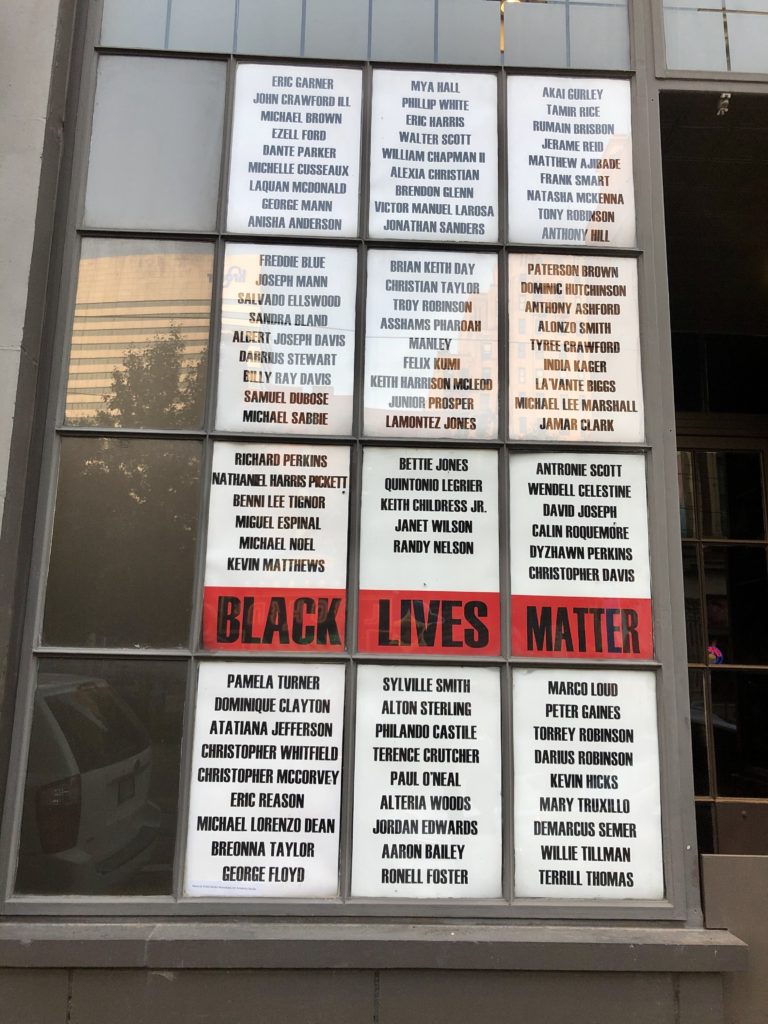 ERIC GARNER
JOHN CRAWFORD ILL
MICHAEL BROWN
EZELL FORD
DANTE PARKER
MICHELLE CUSSEAUX
LAQUAN MCDONALD
GEORGE MANN
ANISHA ANDERSON
MYA HALL
PHILLIP WHITE
ERIC HARRIS
WALTER SCOTT
WILLIAM CHAPMAN II
ALEXIA CHRISTIAN
BRENDON GLENN
VICTOR MANUEL LAROSA
JONATHAN SANDERS
AKAI GURLEY
TAMIR RICE
RUMAIN BRISBON
JERAME REID
MATTHEW AJIBADE
FRANK SMART
NATASHA MCKENNA
TONY ROBINSON
ANTHONY HILL
FREDDIE BLUE
JOSEPH MANN
SALVADO ELLSWOOD
SANDRA BLAND
ALBERT JOSEPH DAVIS
DARRIUS STEWART
BILLY RAY DAVIS
SAMUEL DUBOSE
MICHAEL SABBIE
BRIAN KEITH DAY
CHRISTIAN TAYLOR
TROY ROBINSON
ASSHAMS PHAROAH
MANLEY
FELIX KUMI
KEITH HARRISON MCLEOD
JUNIOR PROSPER
LAMONTEZ JONES
PATERSON BROWN
DOMINIC HUTCHINSON
ANTHONY ASHFORD
ALONZO SMITH
TYREE CRAWFORD
INDIA KAGER
LA'VANTE BIGGS
MICHAEL LEE MARSHALL
JAMAR CLARK
RICHARD PERKINS
NATHANIEL HARRIS PICKETT
BENNI LEE TIGNOR
MIGUEL ESPINAL
MICHAEL NOEL
KEVIN MATTHEWS
BETTIE JONES
QUINTONIO LEGRIER
KEITH CHILDRESS JR.
JANET WILSON
RANDY NELSON
ANTRONIE SCOTT
WENDELL CELESTINE
DAVID JOSEPH
CALIN ROQUEMORE
DYZHAWN PERKINS
CHRISTOPHER DAVIS
BLACK LIVES MATTER
PAMELA TURNER
DOMINIQUE CLAYTON
ATATIANA JEFFERSON
CHRISTOPHER WHITFIELD
CHRISTOPHER MCCORVEY
ERIC REASON
MICHAEL LORENZO DEAN
BREONNA TAYLOR
GEORGE FLOYD
SYLVILLE SMITH
ALTON STERLING
PHILANDO CASTILE
TERENCE CRUTCHER
PAUL O'NEAL
ALTERIA WOODS
JORDAN EDWARDS
AARON BAILEY
RONELL FOSTER
MARCO LOUD
PETER GAINES
TORREY ROBINSON
DARIUS ROBINSON
KEVIN HICKS
MARY TRUXILLO
DEMARCUS SEMER
WILLIE TILLMAN
TERRILL THOMAS